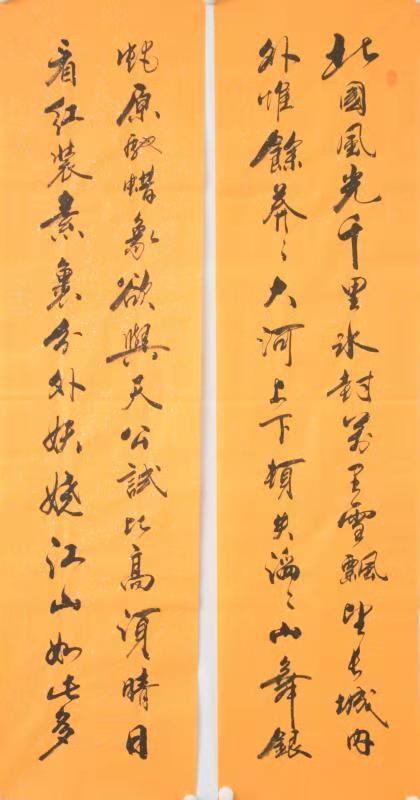 北國風光千里冰封萬里雪飄望長城內
外惟餘莽々大河上下頓失滔々山舞銀
蛇原馳蜡象欲與天公試比高須晴日
看紅裝素裹分外妖嬈江山如此多